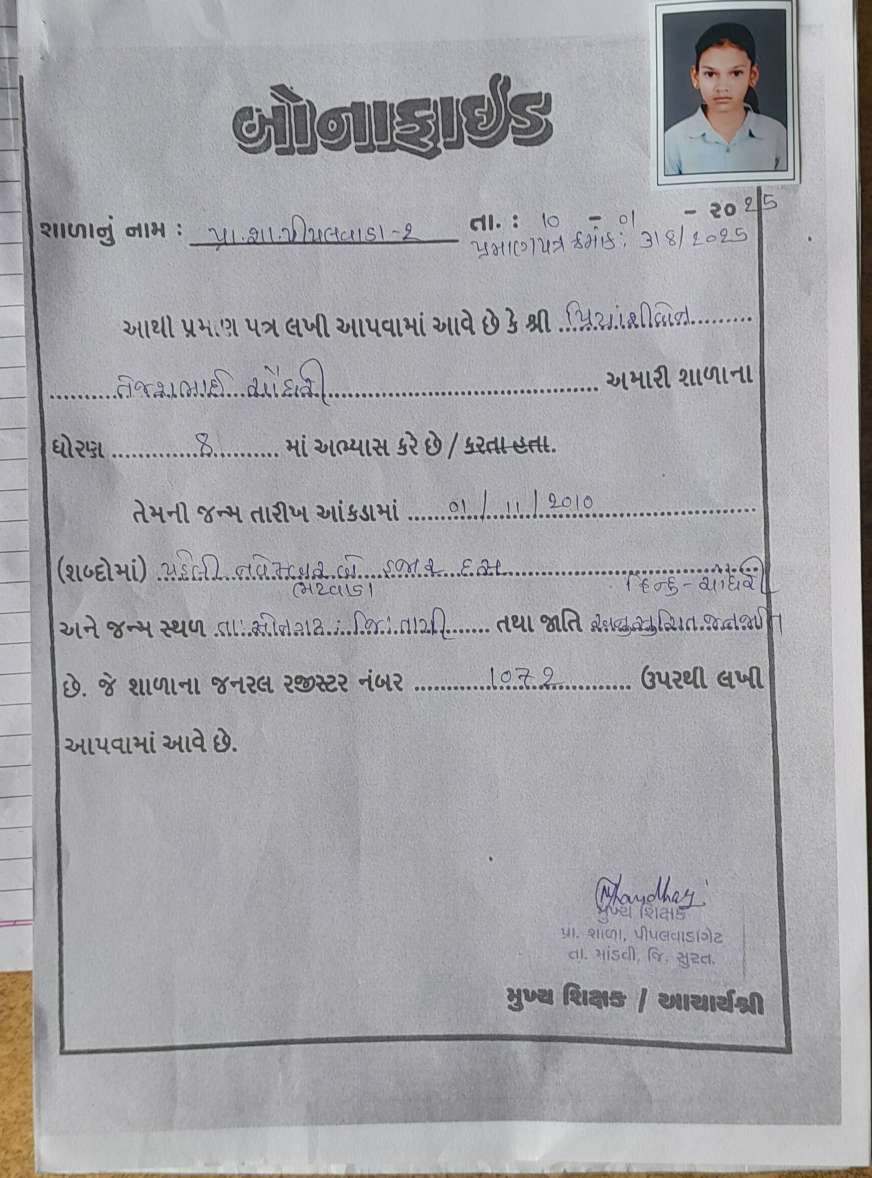 બોનાફાઈડ
શાળાનું નામ : પ્રા.શા.પીપલવાડા-૨ તા. : 10 - 01 - ૨૦ 25
પ્રમાણપત્ર ક્રમાંક: 318/2025
આથી પ્રમાણ પત્ર લખી આપવામાં આવે છે કે શ્રી પ્રિયાંશીબેન
તેજશભાઈ ચૌધરી અમારી શાળાના
ધોરણ 8 માં અભ્યાસ કરે છે / કરતા હતા.
તેમની જન્મ તારીખ આંકડામાં 01/11/2010
(શબ્દોમાં) પહેલી નવેમ્બર બે હજાર દસ
ભટવાડા હિન્દુ-ચૌધરી
અને જન્મ સ્થળ તા:સોનગઢ જિ:તાપી તથા જાતિ અનુસુચિત જનજાતિ
છે. જે શાળાના જનરલ રજીસ્ટર નંબર 1072 ઉપરથી લખી
આપવામાં આવે છે.
મુખ્ય શિક્ષક
પ્રા. શાળા, પીપલવાડાગેટ
તા. માંડવી, જિ. સુરત.
મુખ્ય શિક્ષક / આચાર્યશ્રી